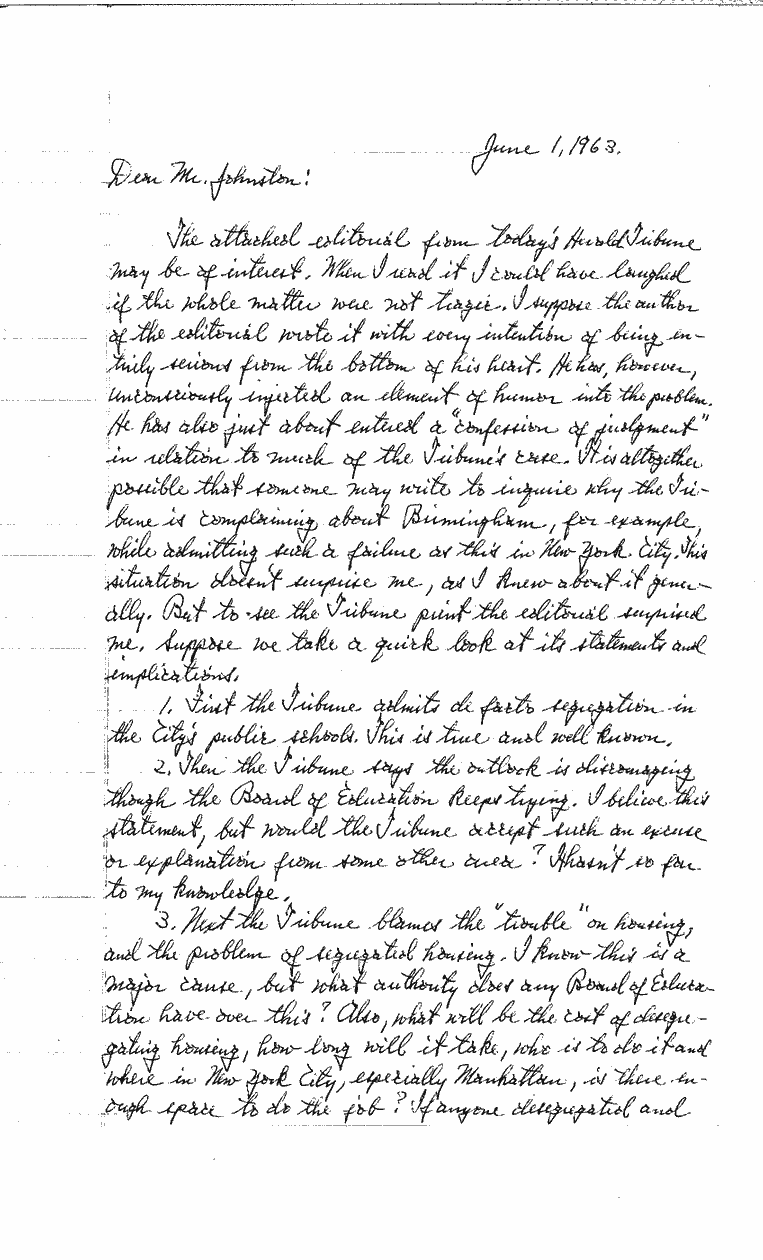 June 1, 1963.
Dear Mr. Johnston:
The attached editorial from today's Herald Tribune
may be of interest. When I read it I could have laughed
if the whole matter were not tragic. I suppose the author
of the editorial wrote it with every intention of being en-
tirely serious from the bottom of his heart. He has, however,
unconsciously injected an element of humor into the problem.
He has also just about entered a "confession of judgment"
in relation to much of the Tribune's case. It is altogether
possible that someone may write to inquire why the Tri-
bune is complaining about Birmingham, for example,
while admitting such a failure as this in New York City. This
situation doesn't surprise me, as I knew about it gener-
ally. But to see the Tribune print the editorial surprised
me. Suppose we take a quick look at its statements and
implications.
1. First the Tribune admits de facto segregation in
the City's public schools. This is true and well known.
2. Then the Tribune says the outlook is discouraging
though the Board of Education keeps trying. I believe this
statement, but would the Tribune accept such an excuse
or explanation from some other area? It hasn't so far
to my knowledge.
3. Next the Tribune blames the "trouble" on housing,
and the problem of segregated housing. I know this is a
major cause, but what authority does any Board of Educa-
tion have over this? Also, what will be the cost of desegre-
gating housing, how long will it take, who is to do it and
where in New York City, especially Manhattan, is there en-
ough space to do the job? If anyone desegregated and